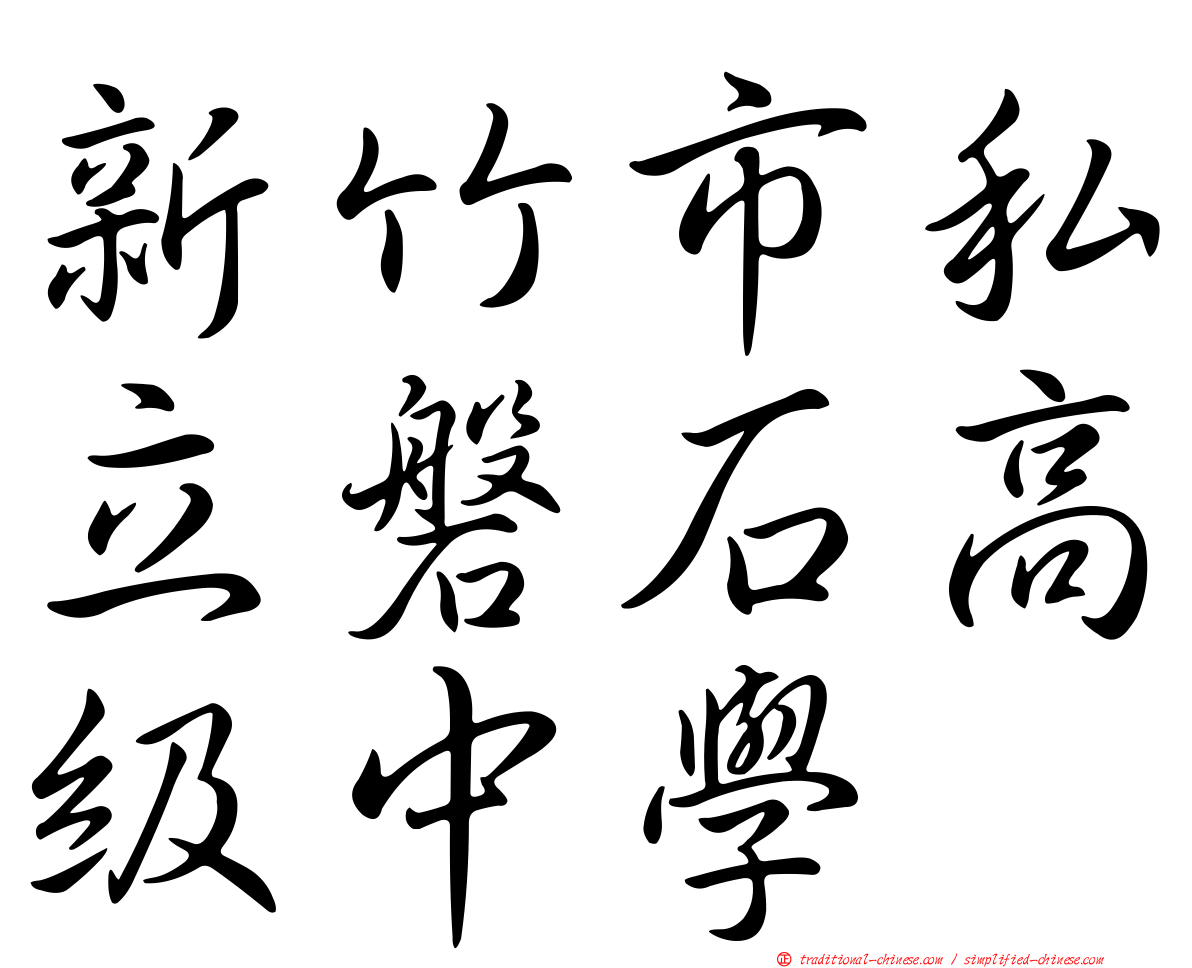 新竹市私
立磐石高
級中學
正 traditional-chinese.com / simplified-chinese.com